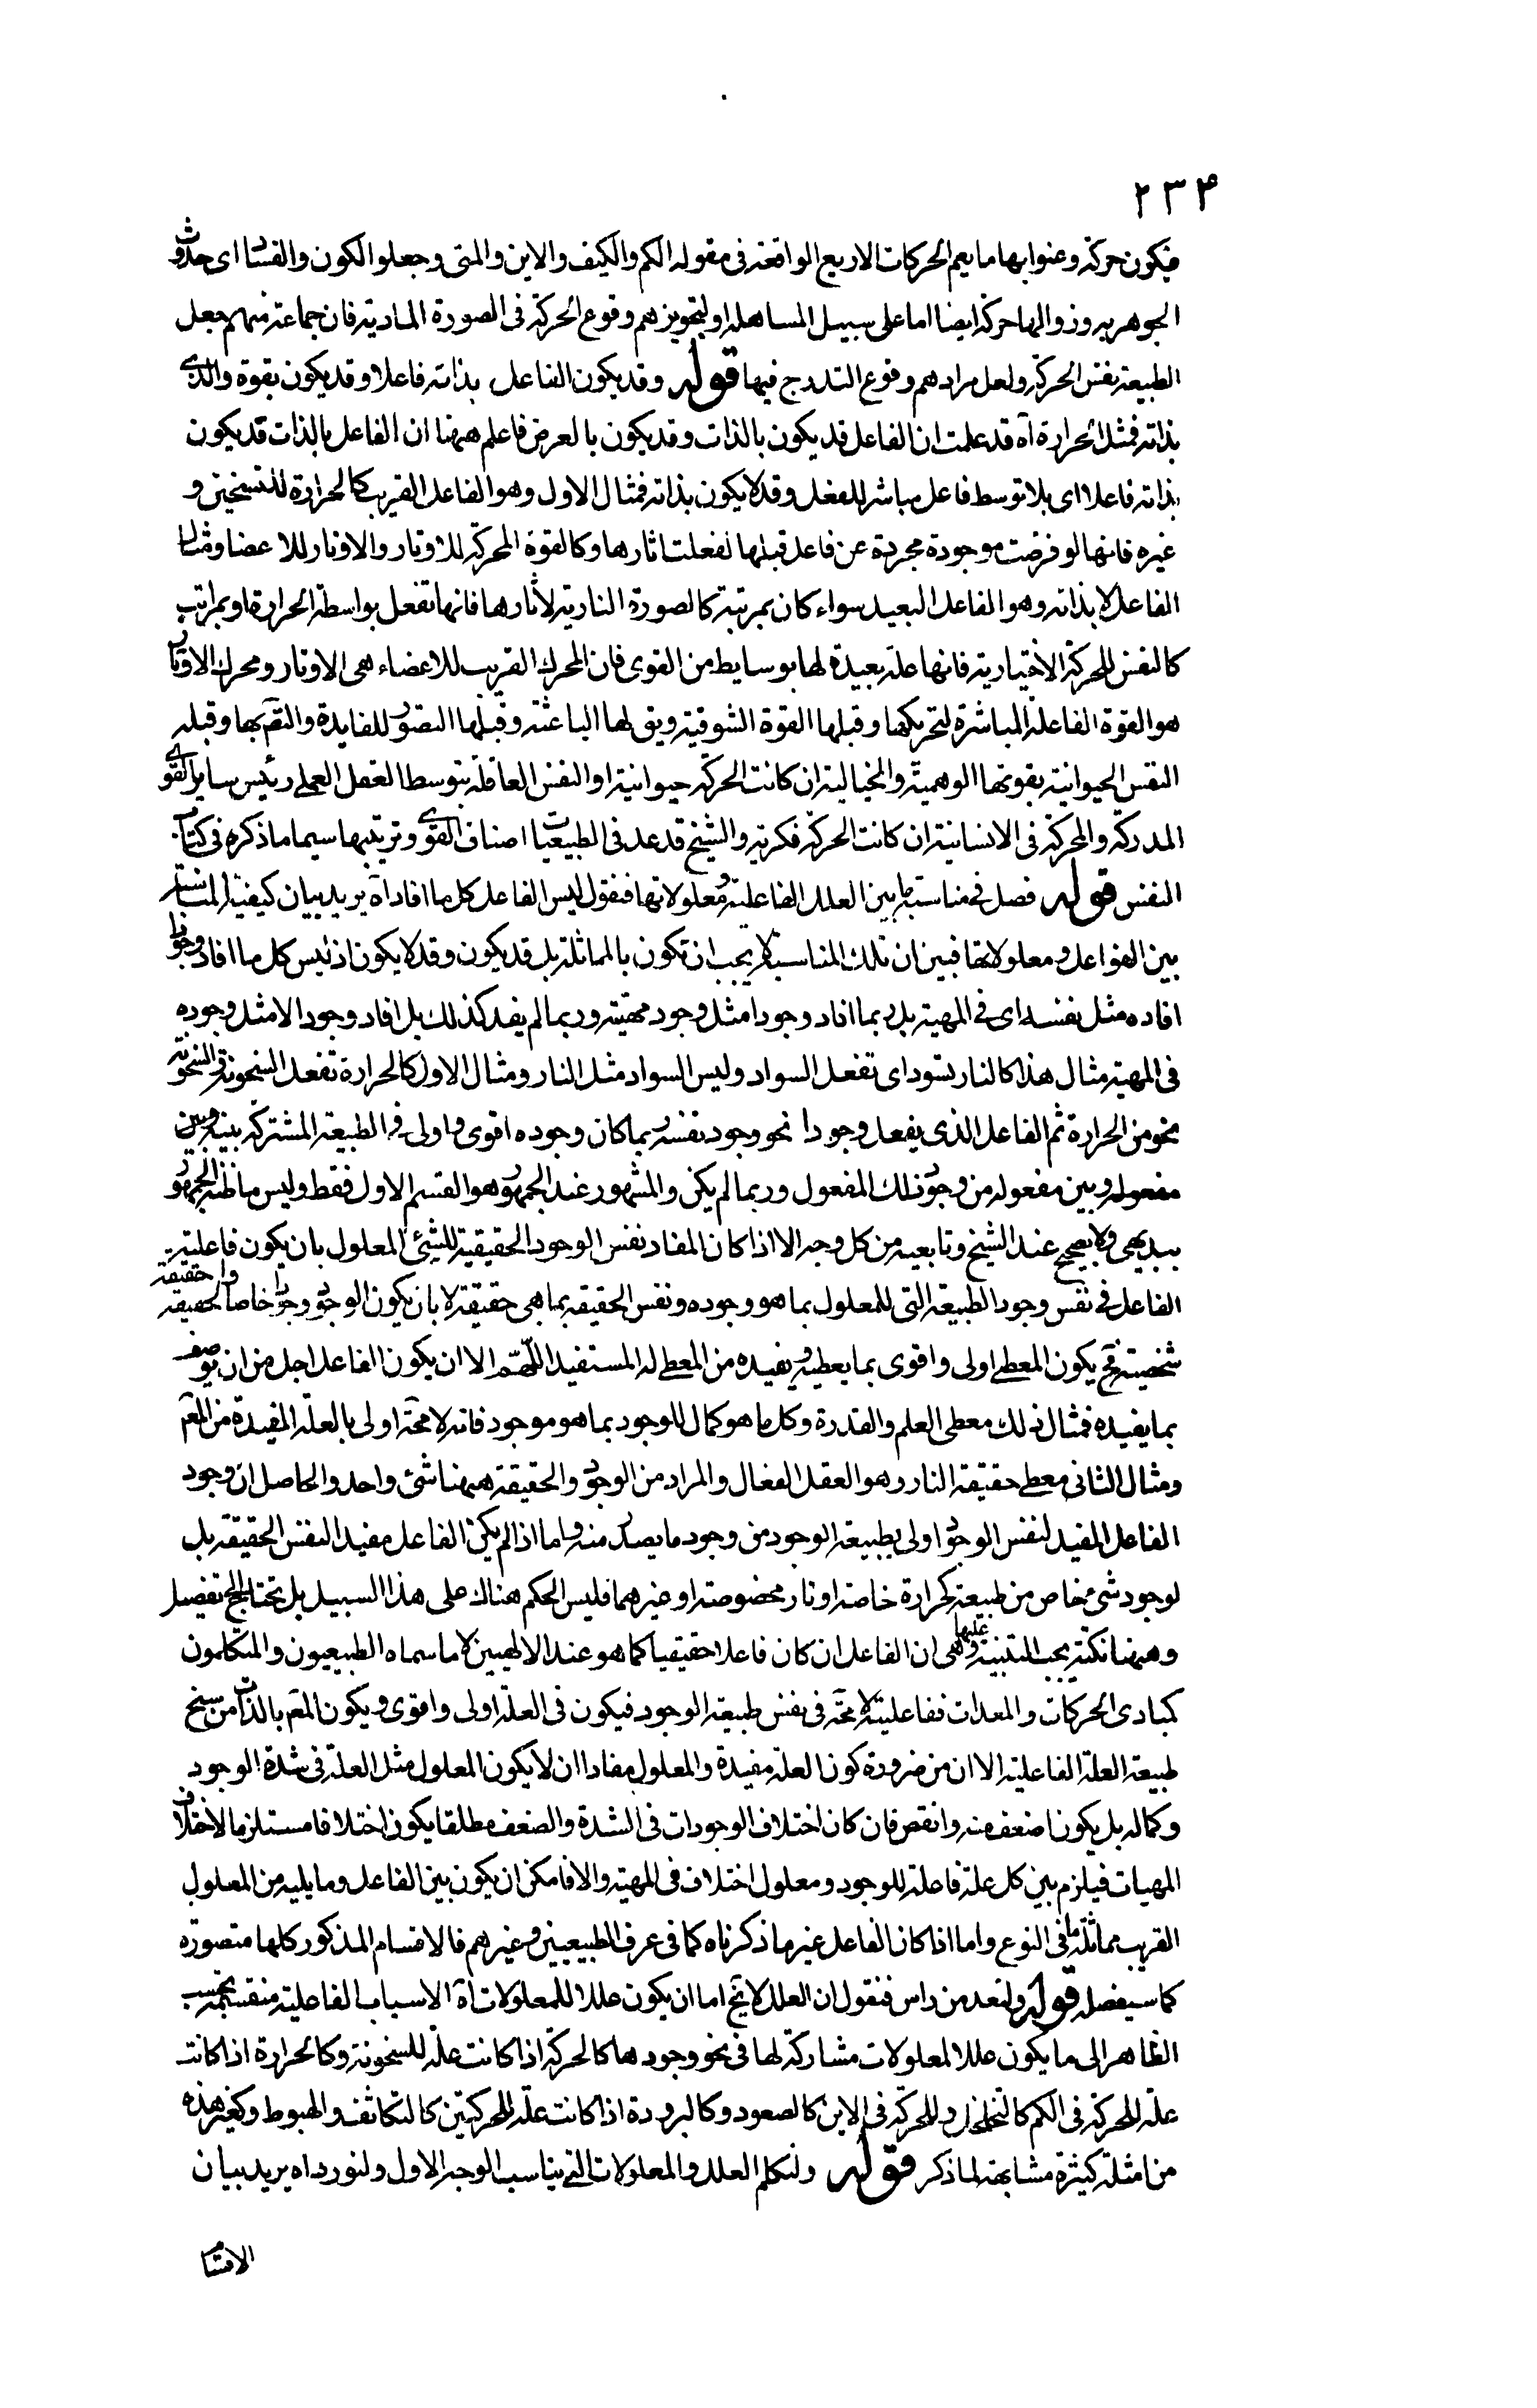 ۲۳۴
فيكون حركة وعنوا بها ما يعم الحركات الاربع الواقعة فى مقوله الكم والكيف والاين والمتى وجعلوا الكون والفساد اى حدوث
الجوهريه وزوالها حركة ايضا اما على سبيل المساهلة او لتجويزهم وقوع الحركة فى الصورة المادية فان جماعة منهم جعل
الطبيعة نفس الحركة ولعل مرادهم وقوع التدرج فيها قوله وقد يكون الفاعل بذاته فاعلا وقد يكون بقوة والذى
بذاته فمثل الحرارة آه قد علمت ان الفاعل قد يكون بالذات وقد يكون بالعرض فاعلم ههنا ان الفاعل بالذات قد يكون
بذاته فاعلا اى بلا توسط فاعل مباشر للفعل وقد لا يكون بذاته فمثال الاول وهو الفاعل القريب كالحرارة للتسخين و
غيره فانها لو فرضت موجودة مجردة عن فاعل قبلها لفعلت اثارها وكالقوة المحركة للاوتار والاوتار للاعضا ومثال
الفاعل لا بذاته وهو الفاعل البعيد سواء كان بمرتبة كالصورة النارية لاثارها فانها تفعل بواسطة الحرارة او بمراتب
كالنفس للحركة الاختيارية فانها علة بعيدة لها بوسايط من القوى فان المحرك القريب للاعضاء هى الاوتار ومحرك الاوتار
هو القوة الفاعلة المباشرة لتحريكها وقبلها القوة الشوقية ويق لها الباعثة وقبلها التصور للفايدة والتصم بها وقبله
النفس الحيوانية بقوتها الوهمية والخيالية ان كانت الحركة حيوانية او النفس العاقلة بتوسط العقل العملى رئيس ساير القوى
المدركة والمحركة فى الانسانية ان كانت الحركة فكرية والشيخ قد عد فى الطبيعيات اصناف القوى وترتيبها سيما ما ذكره فى كتاب
النفس قوله فصل فى مناسبة ما بين العلل الفاعلية ومعلولاتها فنقول ليس الفاعل كل ما افاد آه يريد بيان كيفية المناسبة
بين الفواعل ومعلولاتها فبين ان تلك المناسبة لا يجب ان تكون بالمماثلة بل قد يكون وقد لا يكون اذ ليس كل ما افاد وجودا
افاده مثل نفسه اى فى المهية بل ربما افاد وجودا مثل وجود مهيته وربما لم يفد كذلك بل افاد وجودا لا مثل وجوده
فى المهية مثال هذا كالنار تسود اى تفعل السواد وليس السواد مثل النار ومثال الاول كالحرارة تفعل السخونة والسخونة
نحو من الحرارة ثم الفاعل الذى يفعل وجودا نحو وجود نفسه ربما كان وجوده اقوى واولى فى الطبيعة المشتركة بينه وبين
مفعوله وبين مفعوله من وجود ذلك المفعول وربما لم يكن والمشهور عند الجمهور هو القسم الاول فقط وليس ما ظنه الجمهور
ببديهى ولا بصحيح عند الشيخ وتابعيه من كل وجه الا اذا كان المفاد نفس الوجود الحقيقية للشئ المعلول بان يكون فاعلية
الفاعل فى نفس وجود الطبيعة التى للمعلول بما هو وجوده ونفس الحقيقه بما هى حقيقة لا بان يكون الوجود وجودا خاصا والحقيقة حقيقة
شخصية فح يكون المعطى اولى واقوى بما يعطيه ويفيده من المعطى له المستفيد اللهم الا ان يكون الفاعل اجل من ان يوصف
بما يفيده فمثال ذلك معطى العلم والقدرة وكل ما هو كمال للوجود بما هو موجود فانه لا محة اولى بالعلة المفيدة من المعم
ومثال الثانى معطى حقيقة النار وهو العقل الفعال والمراد من الوجود والحقيقة ههنا شئ واحد والحاصل ان وجود
الفاعل المفيد لنفس الوجود اولى بطبيعة الوجود من وجود ما يصدر منه واما اذا لم يكن الفاعل مفيدا لنفس الحقيقة بل
لوجود شئ خاص من طبيعة كحرارة خاصة او نار مخصوصة او غيرهما فليس الحكم هناك على هذا السبيل بل يحتاج الى تفصيل
وههنا نكتة يجب التنبيه عليها وهى ان الفاعل ان كان فاعلا حقيقيا كما هو عند الالهيين لا ما سماه الطبيعيون والمتكلمون
كمبادى الحركات والمعدات ففاعليته لا محة فى نفس طبيعة الوجود فيكون فى العلة اولى واقوى ويكون المعم بالذات من سنخ
طبيعة العلة الفاعلية الا ان من ضرورة كون العلة مفيدة والمعلول مفادا ان لا يكون المعلول مثل العلة فى شدة الوجود
وكماله بل يكون اضعف منه وانقص فان كان اختلاف الوجودات فى الشدة والضعف مطلقا يكون اختلافا مستلزما لاختلاف
المهيات فيلزم بين كل علة فاعلة للوجود ومعلول اختلاف فى المهية والا فامكن ان يكون بين الفاعل وما يليه من المعلول
القريب مماثلة ما فى النوع واما اذا كان الفاعل غير ما ذكرناه كما فى عرف الطبيعيين وغيرهم فالاقسام المذكور كلها متصورة
كما سيفصله قوله ولنعد من راس فنقول ان العلل لا تخ اما ان يكون عللا للمعلولات آه الاسباب الفاعلية منقسمة بحسب
الظاهر الى ما يكون عللا لمعلولات مشاركة لها فى نحو وجودها كالحركة اذا كانت علة للسخونة وكالحرارة اذا كانت
علة للحركة فى الكم كالتخلخل وللحركة فى الاين كالصعود وكالبرودة اذا كانت علة للحركتين كالتكاثف والهبوط وكغير هذه
من امثلة كثيرة مشابهة لما ذكر قوله ولنكلم العلل والمعلولات التى يناسب الوجه الاول ولنورد اه يريد بيان
الاقسام